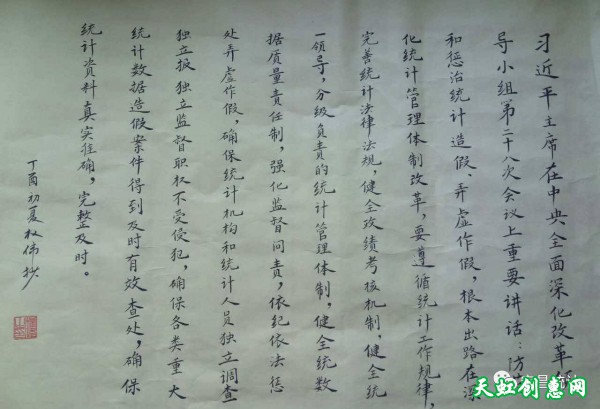 习近平主席在中央全面深化改革领
导小组第二十八次会议上重要讲话：防范
和惩治统计造假、弄虚作假，根本出路在深
化统计管理体制改革，要遵循统计工作规律，
完善统计法律法规，健全政绩考核机制，健全统
一领导，分级负责的统计管理体制，健全统数
据质量责任制，强化监督问责，依纪依法惩
处弄虚作假，确保统计机构和统计人员独立调查
独立报独立监督职权不受侵犯，确保各类重大
统计数据造假案件得到及时有效查处，确保
统计资料真实准确，完整及时。
丁酉初夏 伟抄
天虹创意网